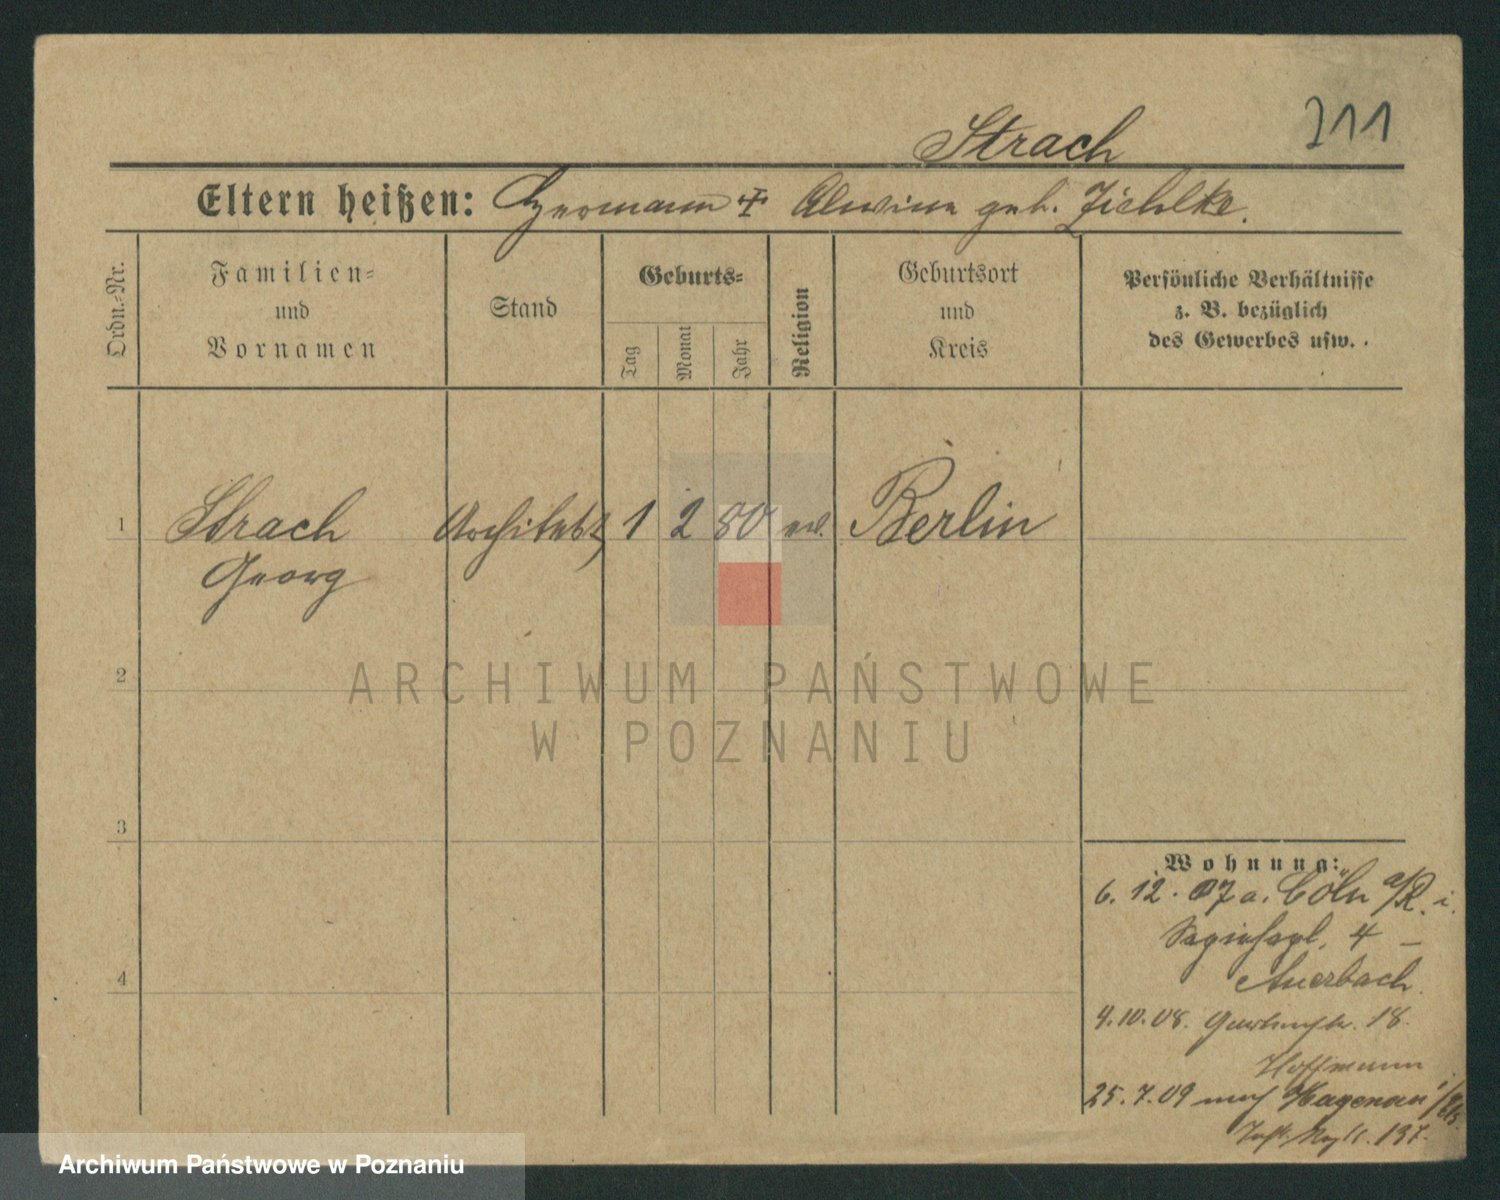 Strach
211
Eltern heißen: Hermann + Alwine geb. Zichlke.
Ordn.-Nr.
Familien-
und
Vornamen
Stand
Geburts-
Tag
Monat
Jahr
Religion
Geburtsort
und
Kreis
Persönliche Verhältnisse
z. B. bezüglich
des Gewerbes usw.
1 Strach Architekt 1 2 80 ev. Berlin
Georg
2
3
4
Wohnung:
6. 12. 07 a. Cöln a/R. i.
4 —
Auerbach
4.10.08. 18.
Hoffmann
25.7.09 nach Hagenau i/Els.
137.
ARCHIWUM PAŃSTWOWE
W POZNANIU
Archiwum Państwowe w Poznaniu